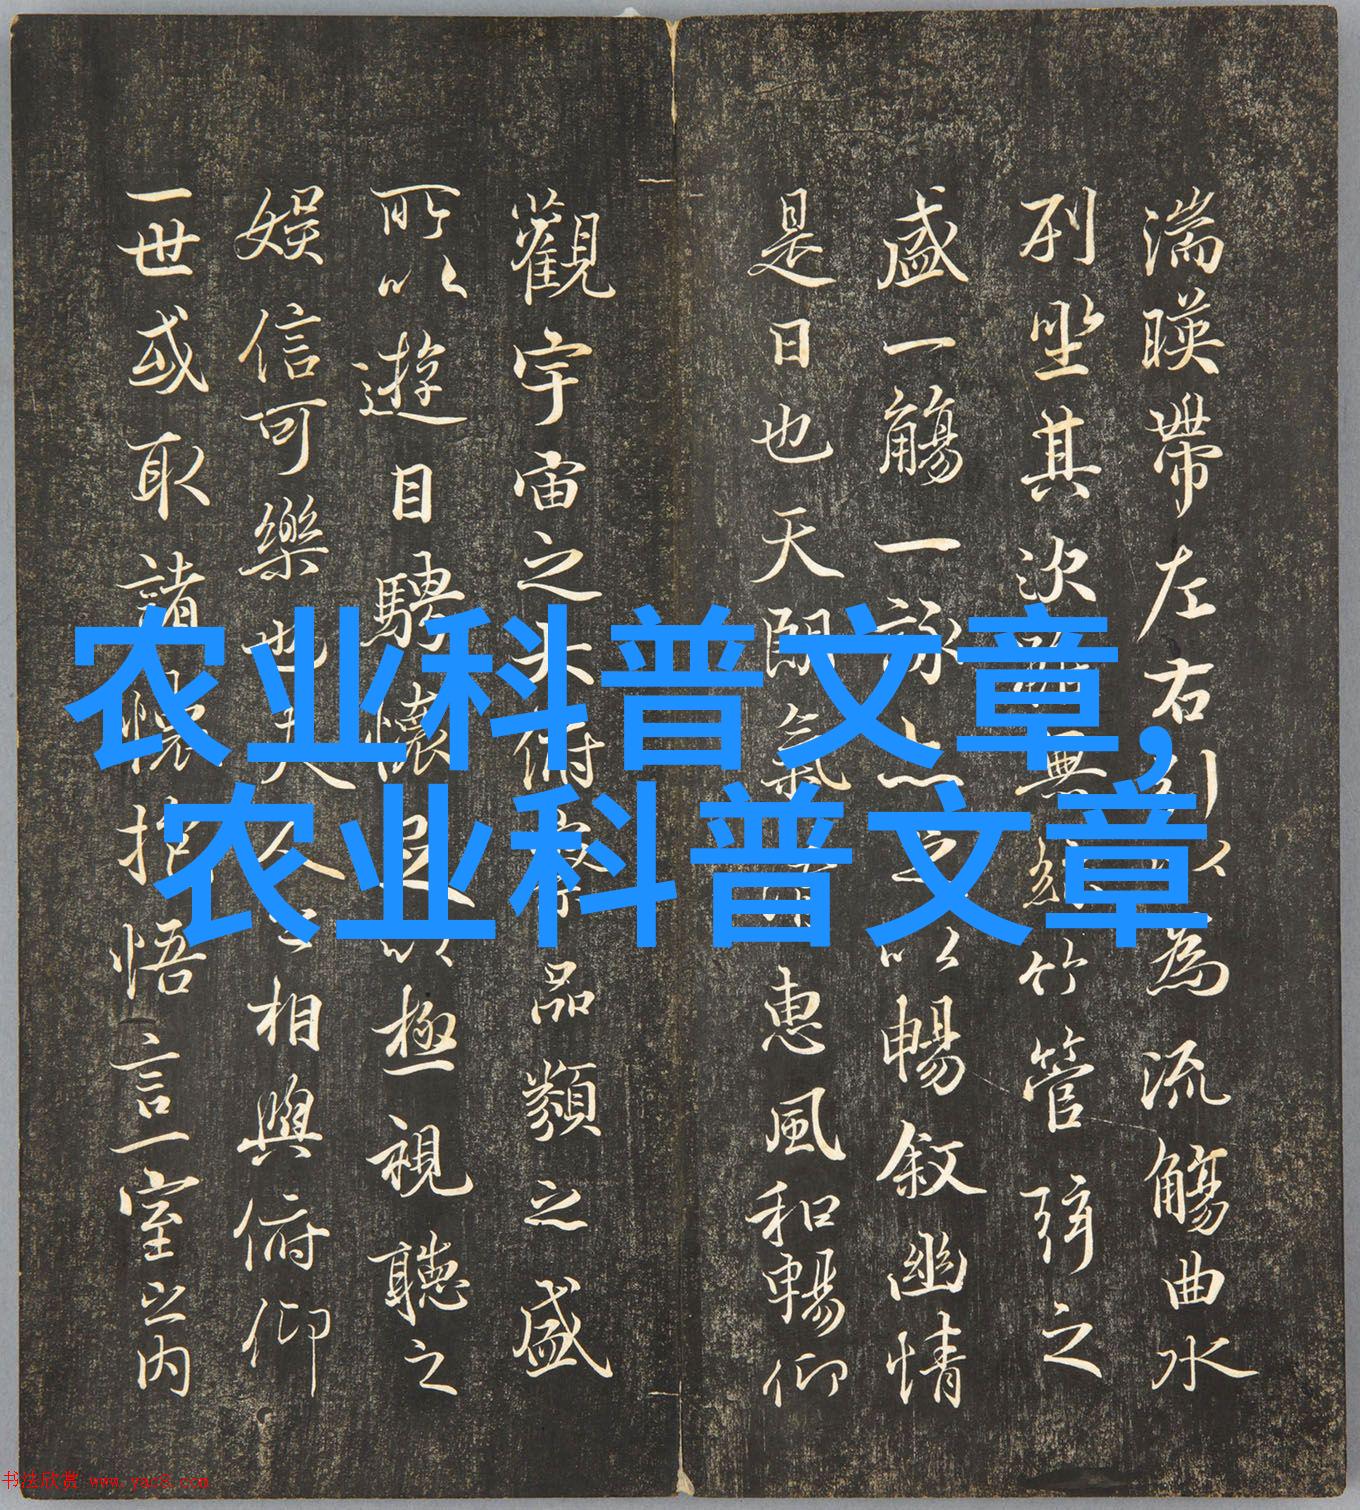 湍暎帶左右引以為流觴曲水
列坐其次雖無絲竹管弦之
盛一觴一詠亦足以暢敘幽情
是日也天朗氣清惠風和暢仰
觀宇宙之大俯察品類之盛
所以遊目騁懷足以極視聽之
娛信可樂也夫人之相與俯仰
一世或取諸懷抱悟言一室之内
农业科普文章,
农业科普文章
书法欣赏 www.yac8.com